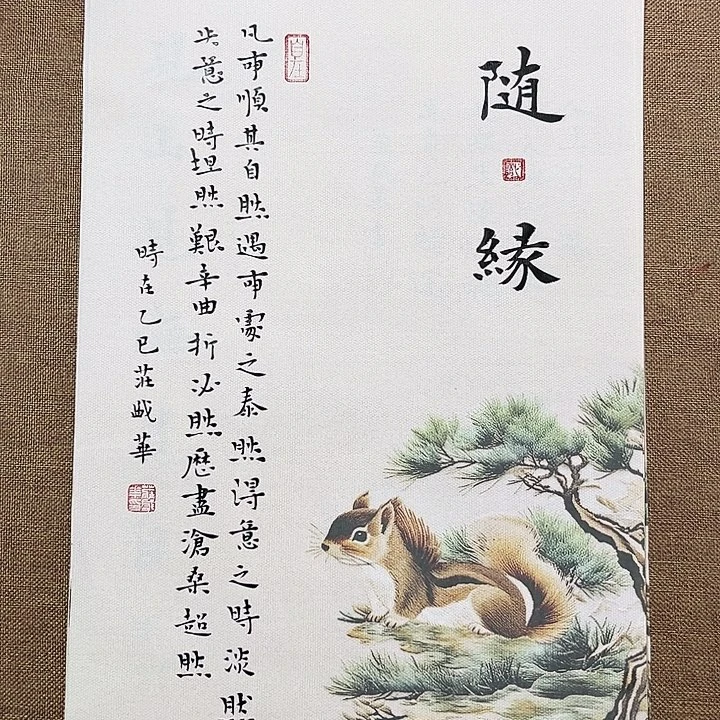 随緣
自在
凡事順其自然遇事處之泰然得意之時淡然
失意之時坦然艱辛曲折必然歷盡滄桑超然
時在乙巳莊華